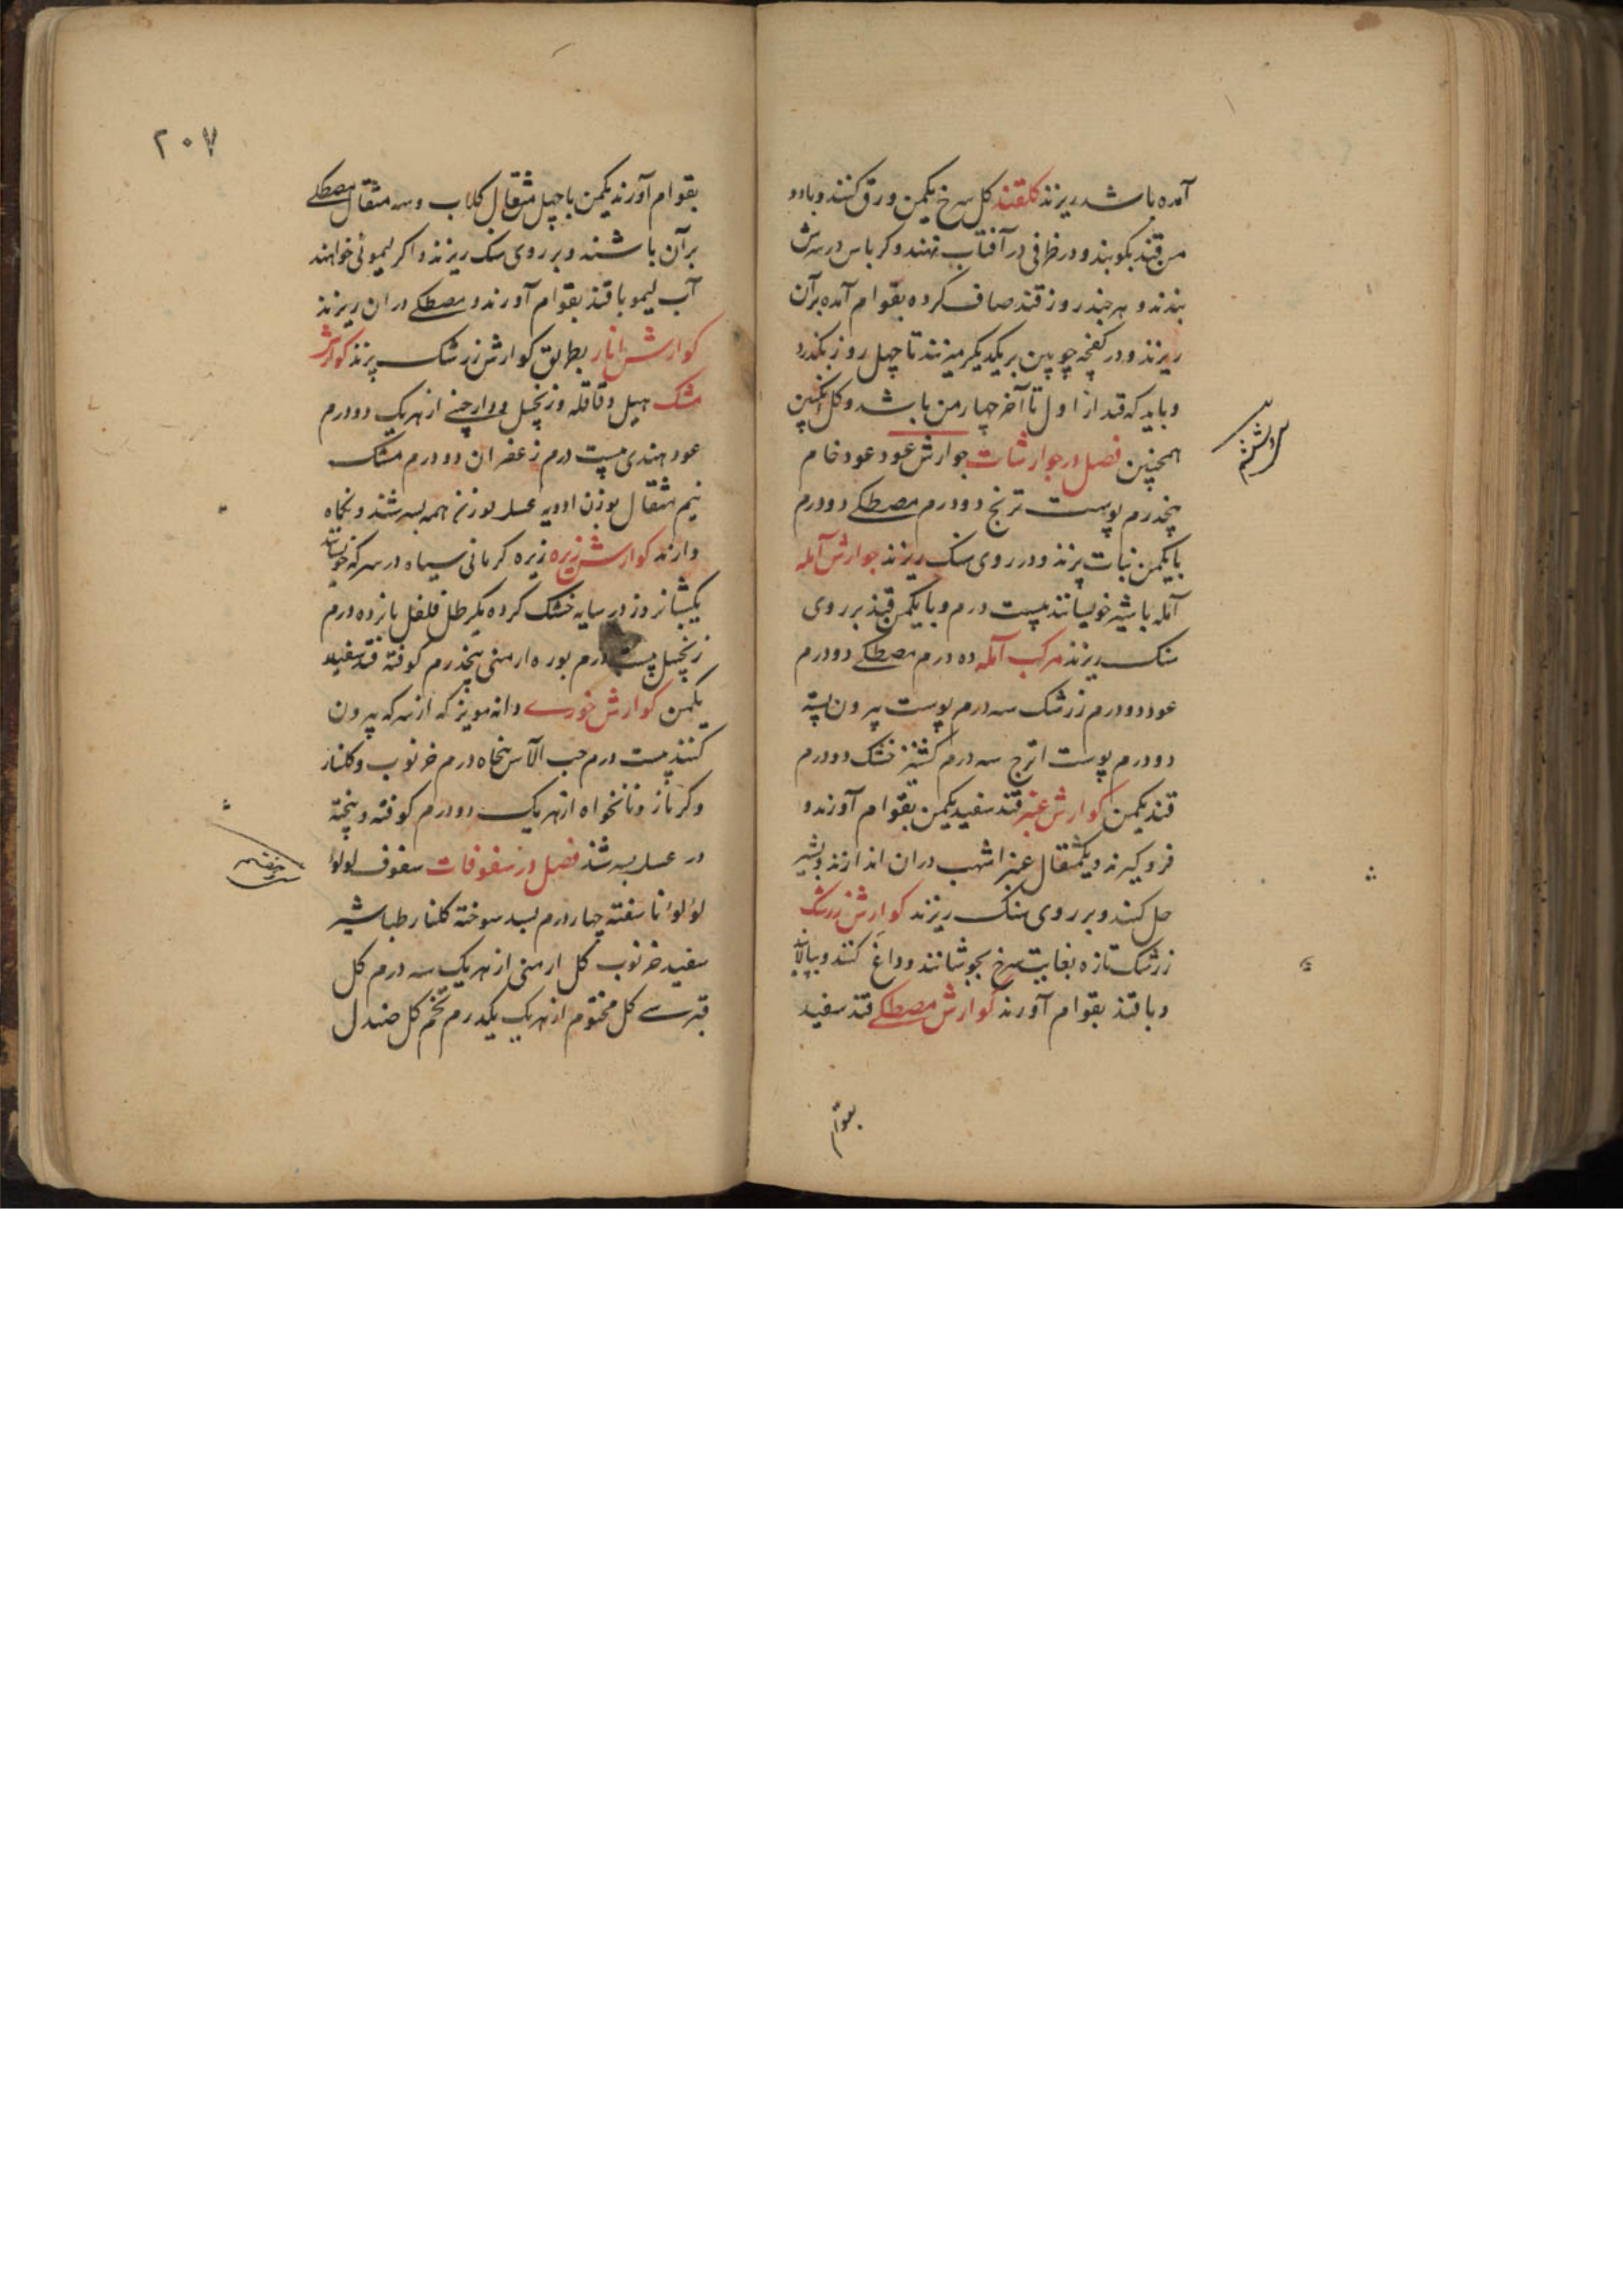 آمده باشد ریزند کلقند کل سرخ یکمن ورق کنند و با دو
من قند بکوبند و در ظرفی در آفتاب نهند و کرباس در سرش
بندند و هر چند روز قند صاف کرده بقوام آمده بر آن
ریزند و در کفچه چوبین بر یکدیکر میزنند تا چهل روز بکذرد
و باید که قند از اول تا آخر چهار من باشد و کل انکبین
همچنین فصل در جوارشات جوارش عود عود خام
پنجدرم پوست ترنج دو درم مصطکی دو درم
با یکمن نبات پزند و در روی سنک ریزند جوارش آمله
آمله با شیر خویسانند بیست درم و با یکمن قند بر روی
سنک ریزند مرکب آمله ده درم مصطکی دو درم
عود دو درم زرشک سه درم پوست بیرون پسته
دو درم پوست اترج سه درم کشنیز خشک دو درم
قند یکمن کوارش عنبر قند سفید یکمن بقوام آورند و
فرو کیرند و یکمثقال عنبر اشهب در ان اندازند و بشیر
حل کنند و بر روی سنک ریزند کوارش زرشک
زرشک تازه بغایت سرخ بجوشانند و داغ کنند و بپالایند
و با قند بقوام آورند کوارش مصطکی قند سفید
بقوام
۲۰۷
بقوام آورند یکمن با چهل مثقال کلاب و سه مثقال مصطکی
بر آن باشند و بر روی سنک ریزند و اکر لیموئی خواهند
آب لیمو با قند بقوام آورند و مصطکی در ان ریزند
کوارش انار بطریق کوارش زرشک پزند کوارش
مشک هیل و قاقله و زنجبیل و دارچینی از هر یک دو درم
عود هندی بیست درم زعفران دو درم مشک
نیم مثقال بوزن ادویه عسل بوزن همه بسرشند و نکاه
دارند کوارش زیره زیره کرمانی سیاه در سرکه خویسانند
یکشبانروز در سایه خشک کرده یکرطل فلفل پانزده درم
زنجبیل بیست درم بوره ارمنی پنجدرم کوفته قند سفید
یکمن کوارش خوزی دانه مویز که از سرکه بیرون
کنند بیست درم حب الآس پنجاه درم خرنوب و کلنار
و کرنازز و نانخواه از هر یک دو درم کوفته و پخته
در عسل بسرشند فصل در سفوفات سفوف لولو
لولو ناسفته چهار درم بسد سوخته کلنار طباشیر
سفید خرنوب کل ارمنی از هر یک سه درم کل
قبرسی کل مختوم از هر یک یکدرم تخم کل صندل